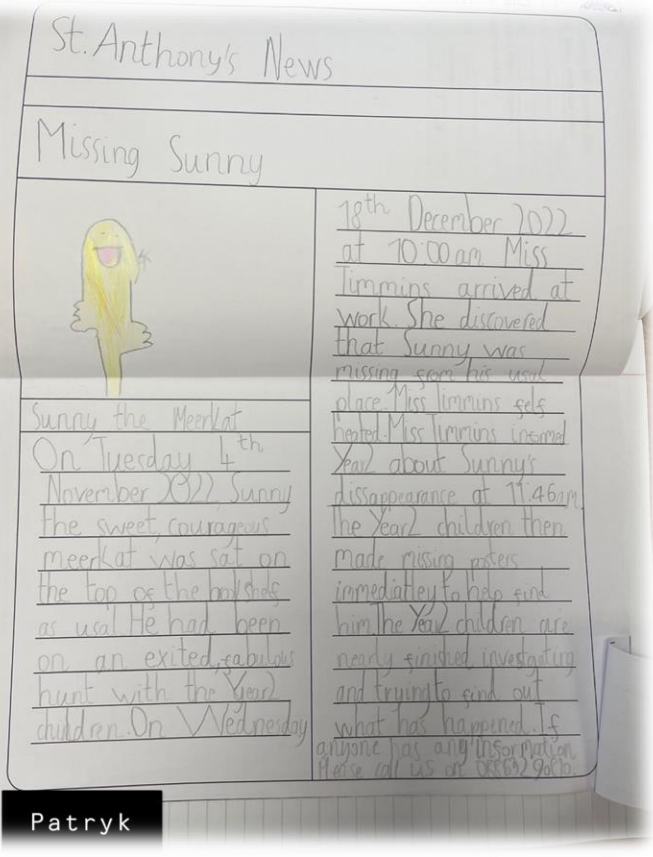 St. Anthony's News
Missing Sunny
Sunny the Meerkat
On Tuesday 4th
November 2022 Sunny
the sweet, courageous
meerkat was sat on
the top of the bookshelf
as usal. He had been
on an exited, fabulous
hunt with the Year2
children. On Wednesday
18th December 2022
at 10:00am Miss
Timmins arrived at
work. She discovered
that Sunny was
missing from his usal
place. Miss Timmins felt
heated. Miss Timmins informed
Year2 about Sunny's
dissappearance at 11:46am.
The Year2 children then
made missing posters
immediatley to help find
him. The Year2 children are
nearly finished investigating
and trying to find out
what has happened. If
anyone has any information
Please call us on
Patryk